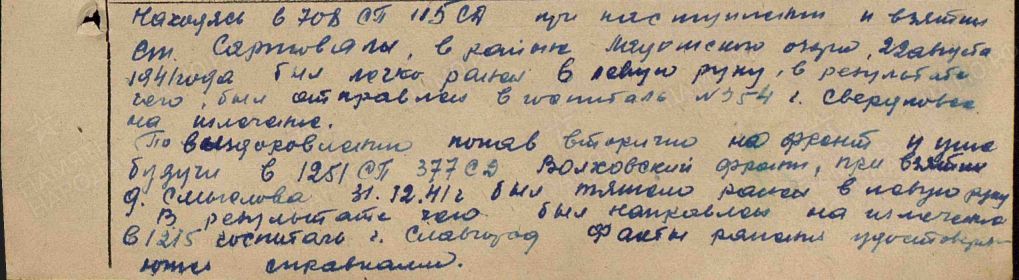 Находясь в 708 СП 115 СД при наступлении и взятии
ст. Сартовалы, в районе озера, 22 августа
1941 года был легко ранен в левую руку, в результате
чего, был отправлен в госпиталь № 354 г. Свердловск
на излечение.
По выздоровлению попав вторично на фронт и уже
будучи в 1251 СП 377 СД Волховский фронт, при взятии
д. Смыслова 31.12.41 г был тяжело ранен в левую руку
В результате чего был направлен на излечение
в 1215 госпиталь г. Славгород Факты ранения удостоверя-
ются справками.